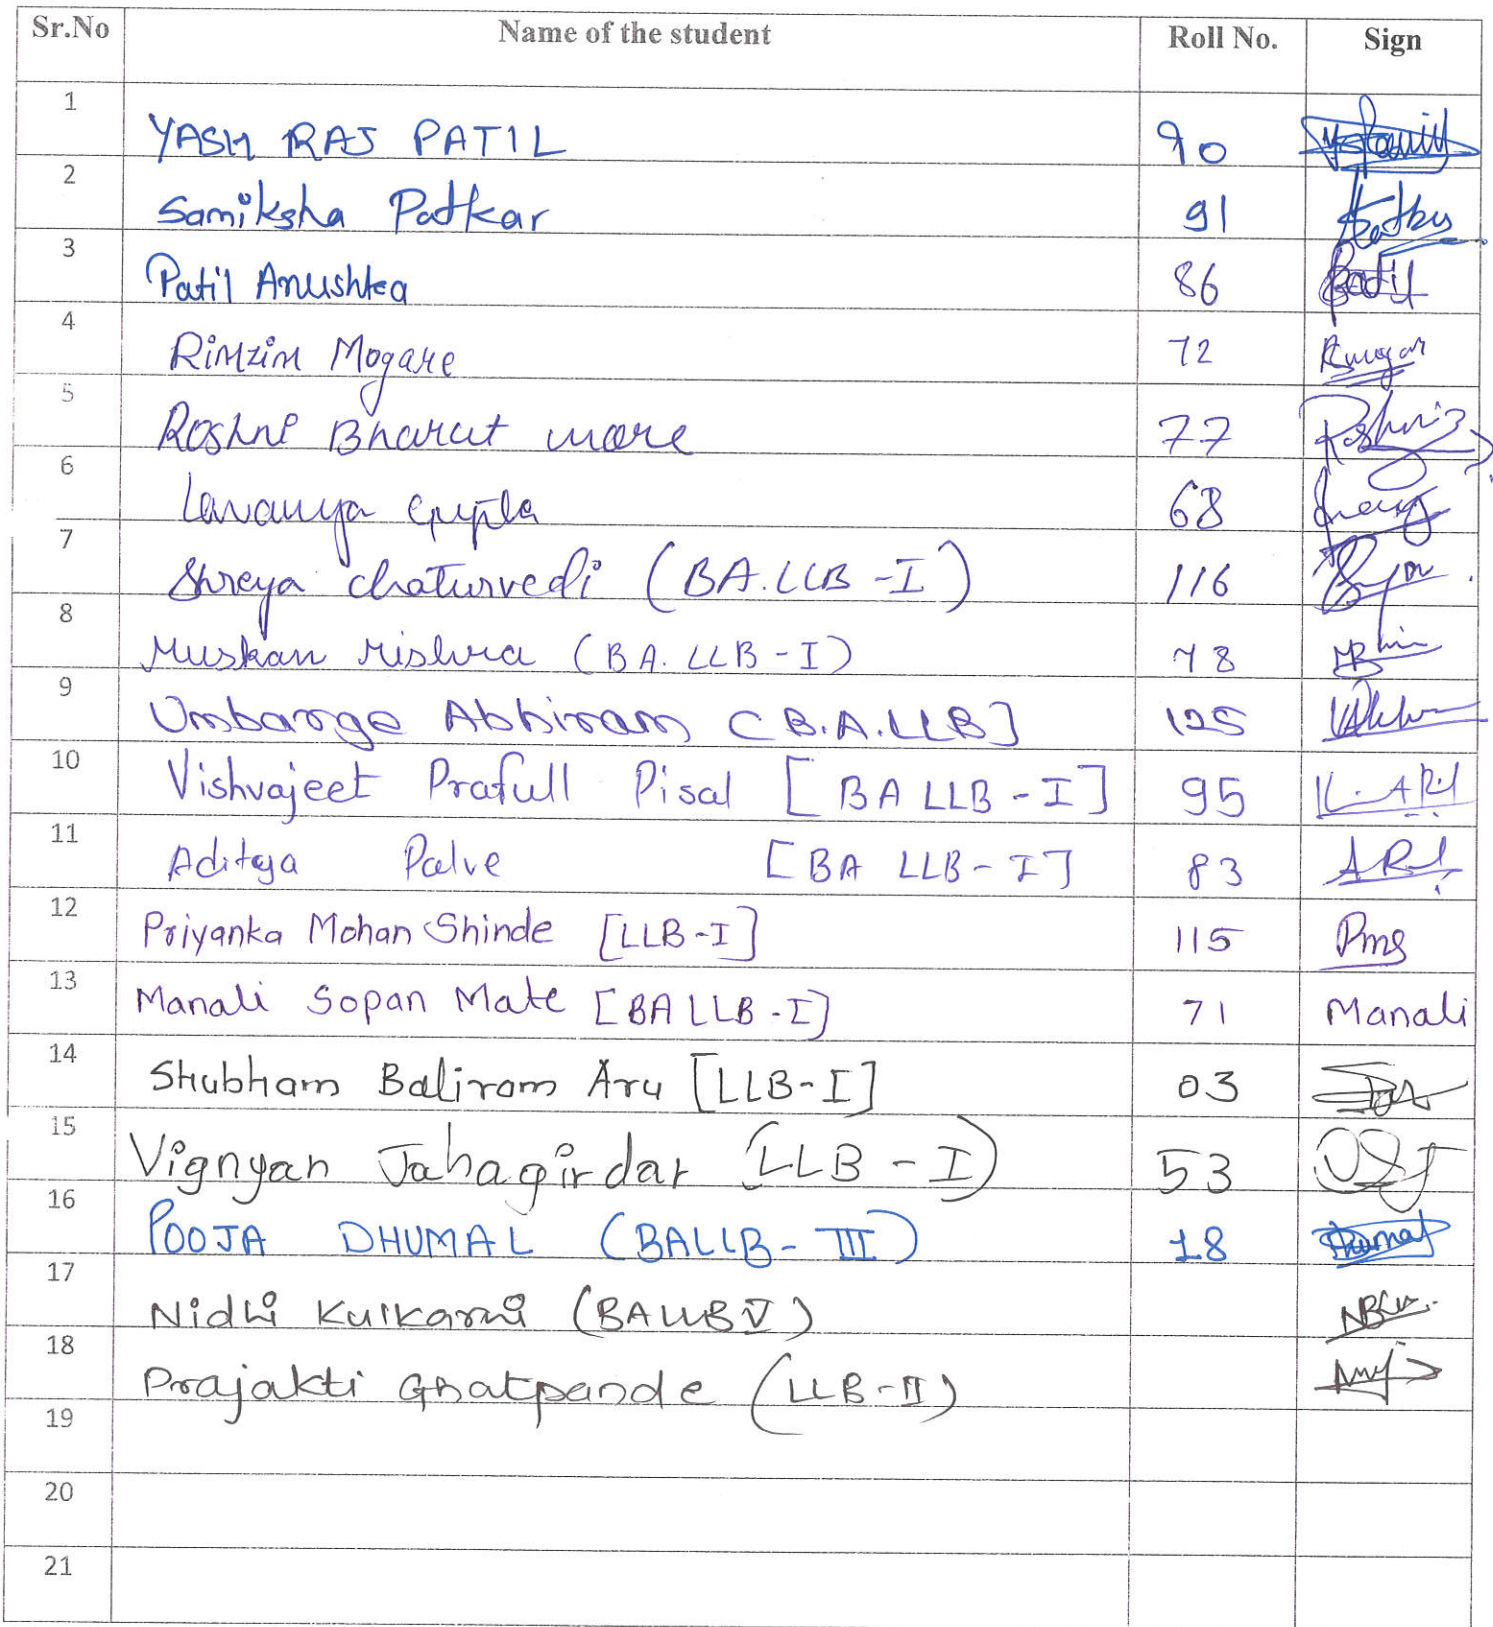 Sr.No Name of the student Roll No. Sign
1 YASH RAJ PATIL 90
2 Samiksha Patkar 91
3 Patil Anushka 86 Patil
4 Rimzim Mogare 72
5 Roshni Bharat more 77 Roshni
6 Lavanya Gupta 68
7 Shreya chaturvedi (BA.LLB-I) 116
8 Muskan Mishra (BA.LLB-I) 78
9 Umbarge Abhiram [B.A.LLB] 125
10 Vishvajeet Prafull Pisal [BA LLB-I] 95
11 Aditya Palve [BA LLB-I] 83
12 Priyanka Mohan Shinde [LLB-I] 115 Pms
13 Manali Sopan Mate [BA LLB-I] 71 Manali
14 Shubham Baliram Aru [LLB-I] 03
15 Vignyan Jahagirdar (LLB-I) 53
16 POOJA DHUMAL (BALLB-III) 18 Dhumal
17 Nidhi Kulkarni (BALLB V)
18 Prajakti Ghatpande (LLB-II)
19
20
21